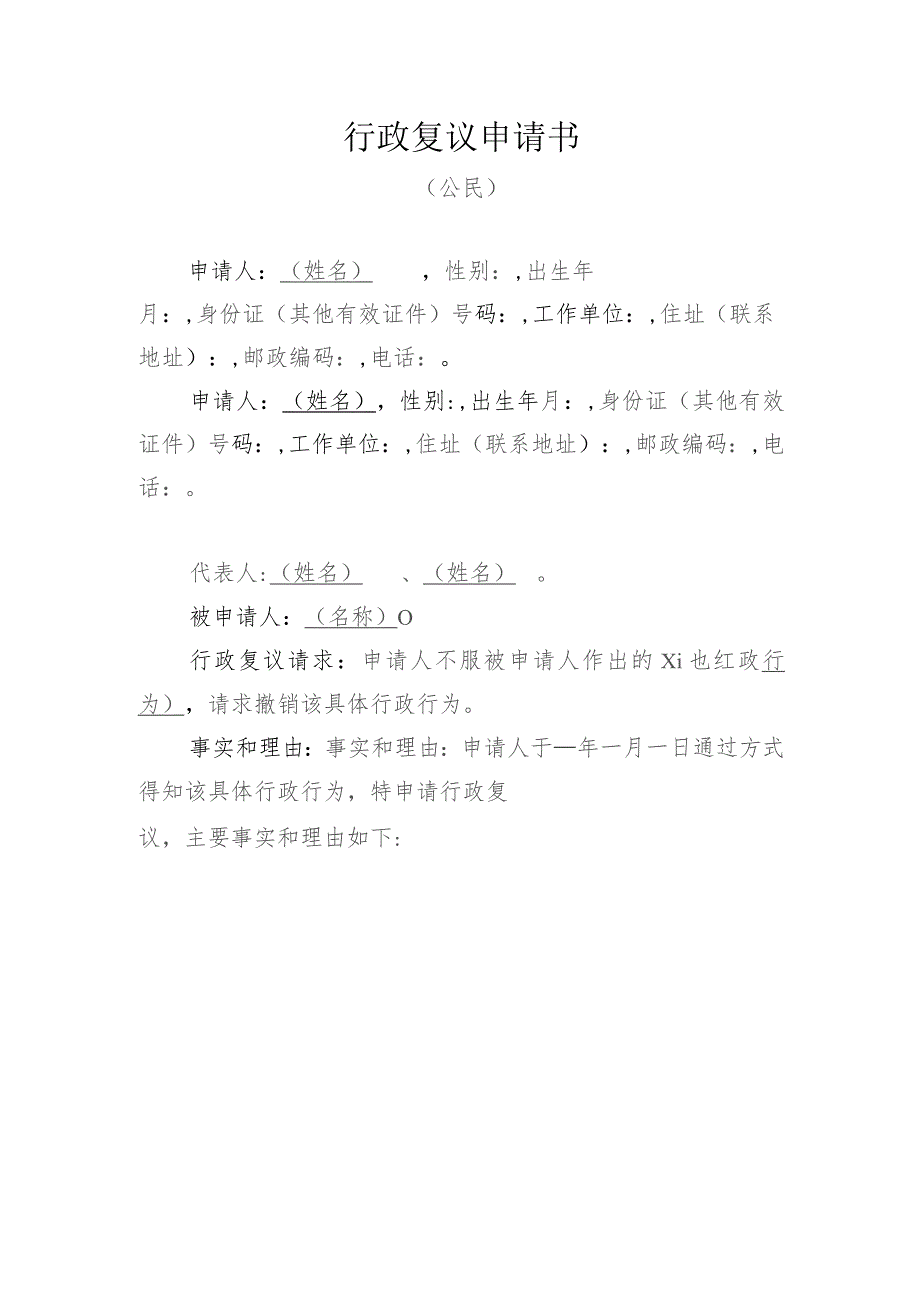 行政复议申请书
（公民）
申请人：（姓名） ，性别：,出生年
月：,身份证（其他有效证件）号码：,工作单位：,住址（联系
地址）：,邮政编码：,电话：。
申请人：（姓名），性别:,出生年月：,身份证（其他有效
证件）号码：,工作单位：,住址（联系地址）：,邮政编码：,电
话：。
代表人:（姓名） 、（姓名） 。
被申请人：（名称）O
行政复议请求：申请人不服被申请人作出的 Xi 也红政行
为），请求撤销该具体行政行为。
事实和理由：事实和理由：申请人于—年一月一日通过方式
得知该具体行政行为，特申请行政复
议，主要事实和理由如下: